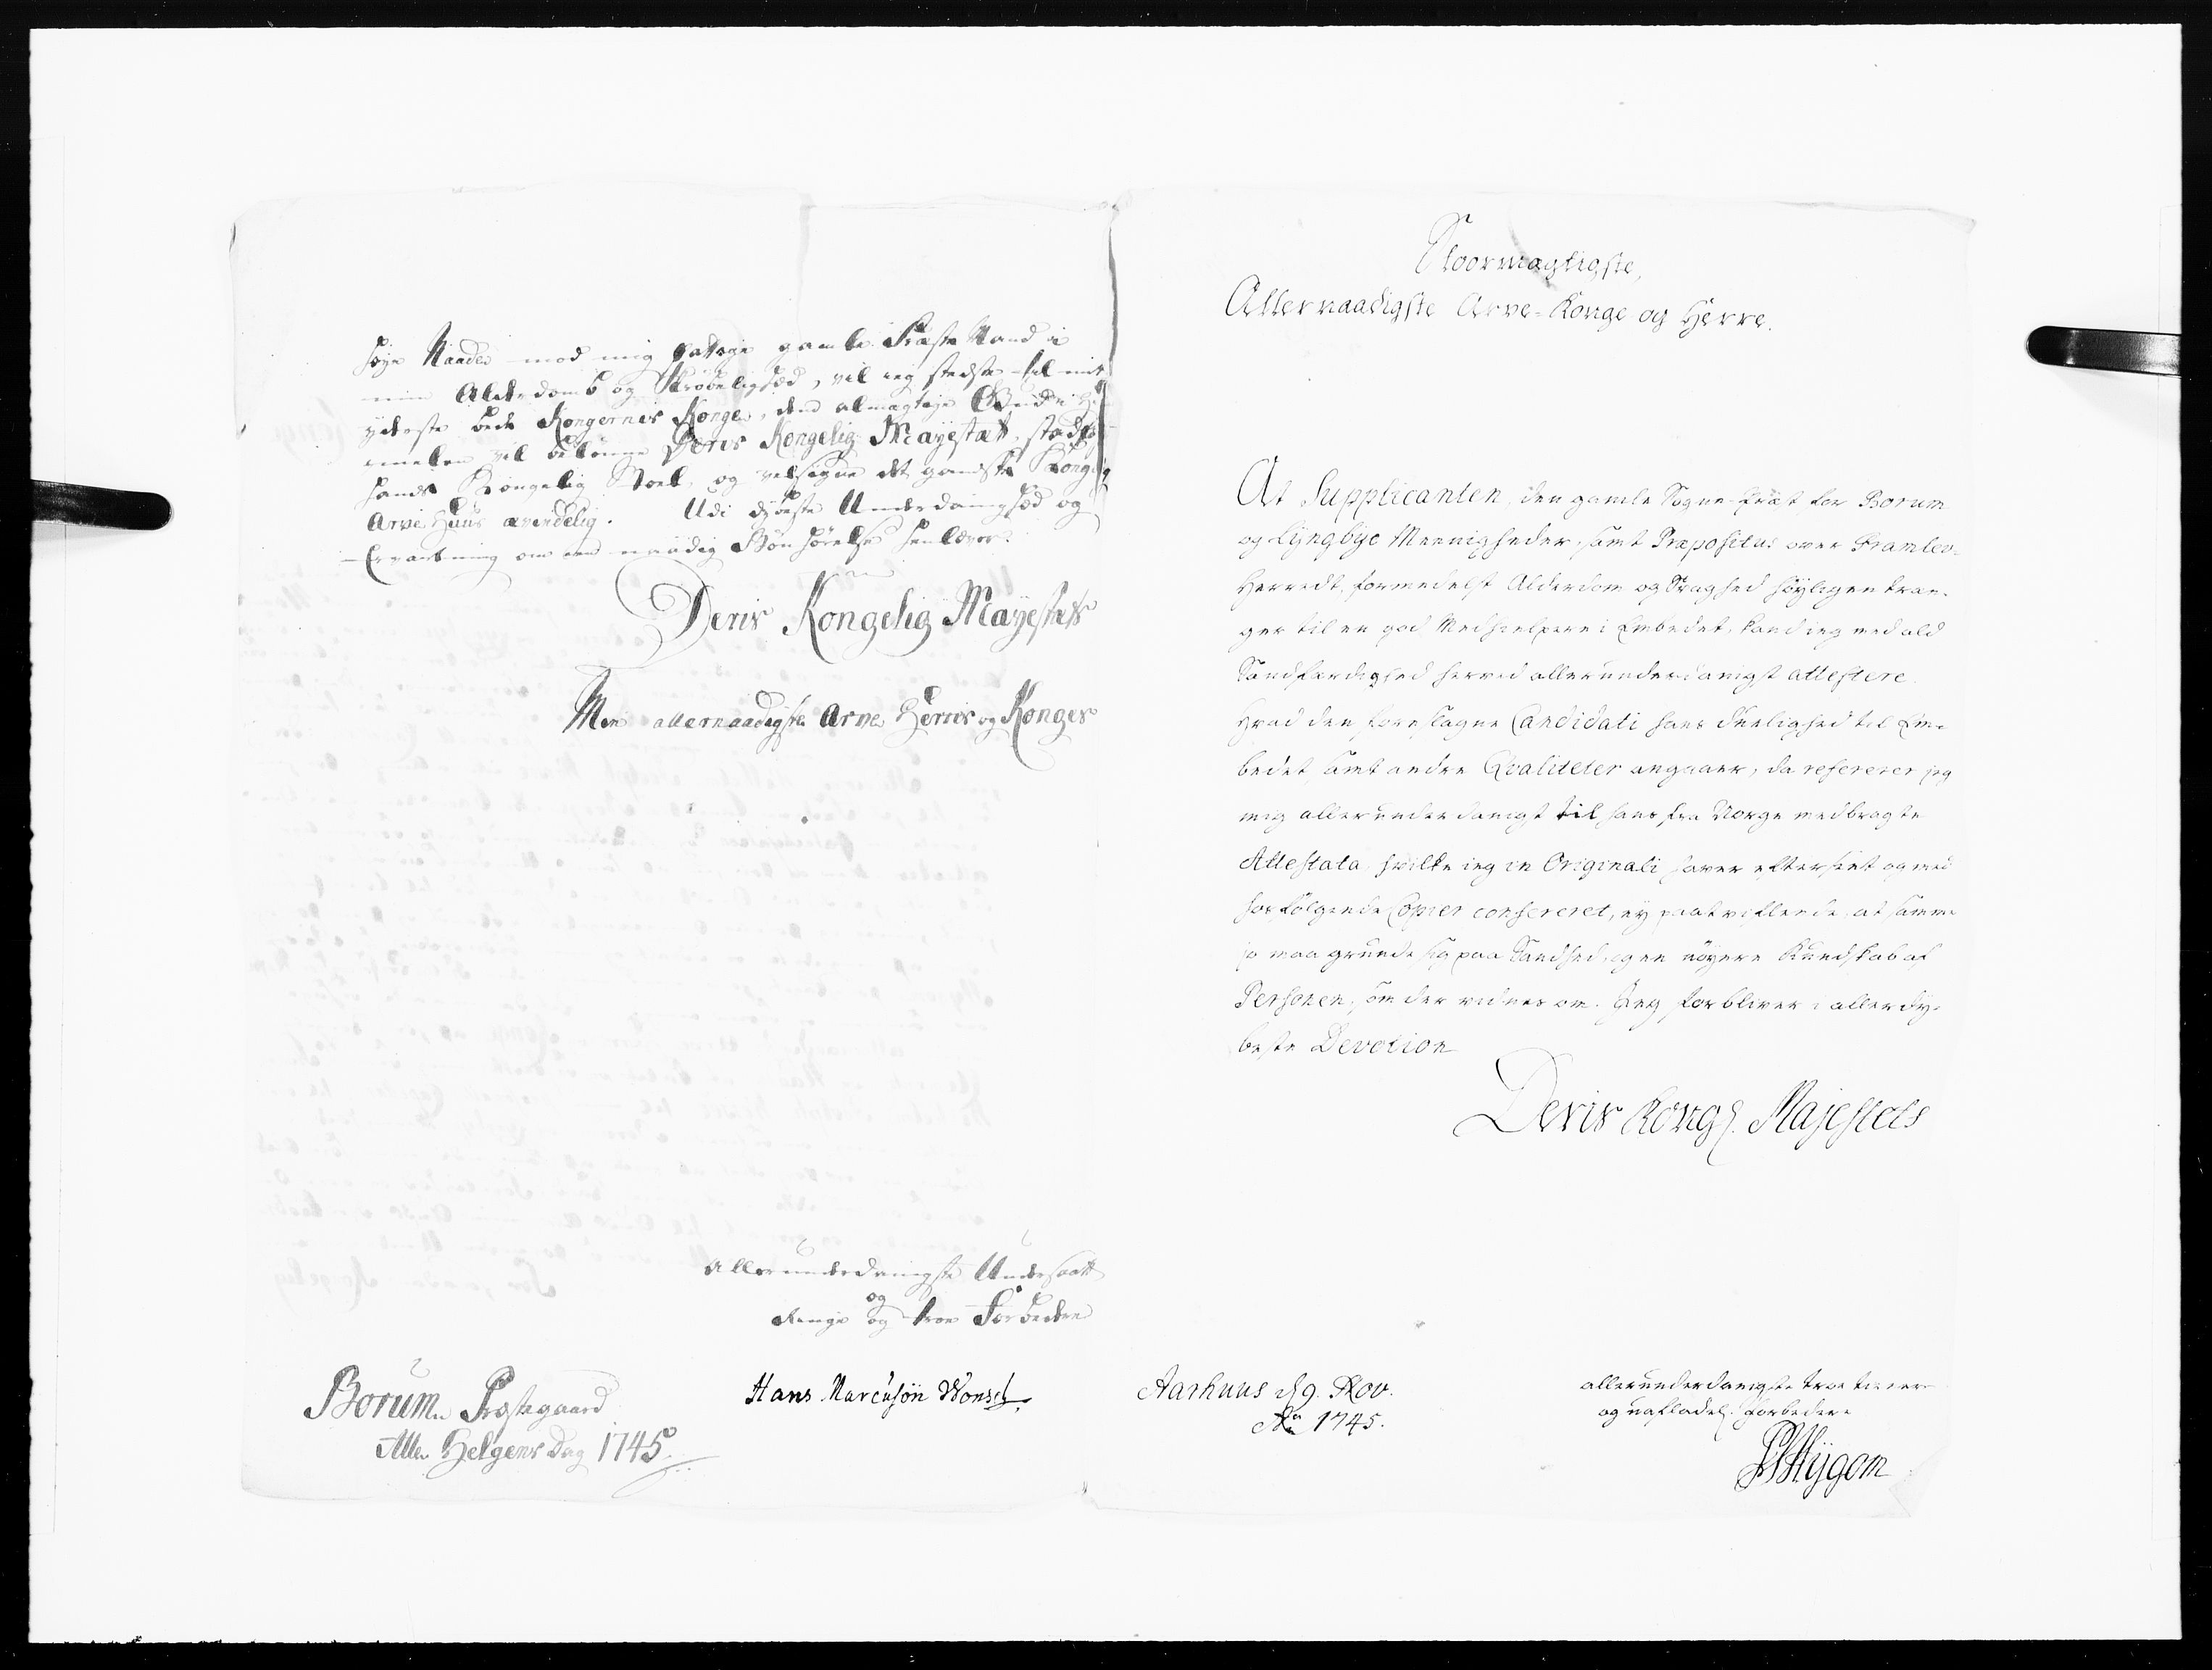 høye Naade mod mig fattige gamle Præste Mand i
min Alderdomb og Skrøbelighed, vil ieg stedse til mit
yderste bede Kongernes Konge, dend almagtige Gud i Him-
melen vil beskierme Deris Kongelig Mayestæt, stadfæste
hands Kongelig Stoel, og velsigne det gandske Kongelig
Arve Huus ævindelig. Udi dybeste Underdanighed og
Forvæntning om een naadig Bønhørelse henlever.
Deris Kongelig Mayestets
Min allernaadigste Arve Herris og Konges
Allerunderdanigste Undersaatt
og
ringe og troe Forbedere
Borum Præstegaard
Alle Helgens Dag 1745
Hans Marcusøn Wonsyl
Stoormægtigste,
Allernaadigste Arve-Konge og Herre.
At Supplicanten, den gamle Sogne-Præst for Borum
og Lyngbye Meenigheder, samt Præpositus over Framlev-
Herredt, formedelst Alderdom og Svaghed høyligen træn-
ger til en god Medhielpere i Embedet, kand ieg med ald
Sandfærdighed herved allerunderdanigst attestere.
Hvad den foreslagne Candidati hans Duelighed til Em-
bedet samt andre Qvaliteter angaaer, da refererer jeg
mig allerunderdanigst til hans fra Norge medbragte
Attestata, hvilke ieg in Originali haver efterseet og med
hosfølgende Copier confereret, ey paatvivlende, at samme
jo maa grunde sig paa Sandhed, og en nøyere Kundskab af
Personen, som der vidnes om. Jeg forbliver i allerdy-
beste Devotion
Deris Kongl. Majestets
Aarhuus d. 9. Nov.
Ao 1745.
allerunderdanigste troe tienere
og uafladel. Forbedere
PHygom